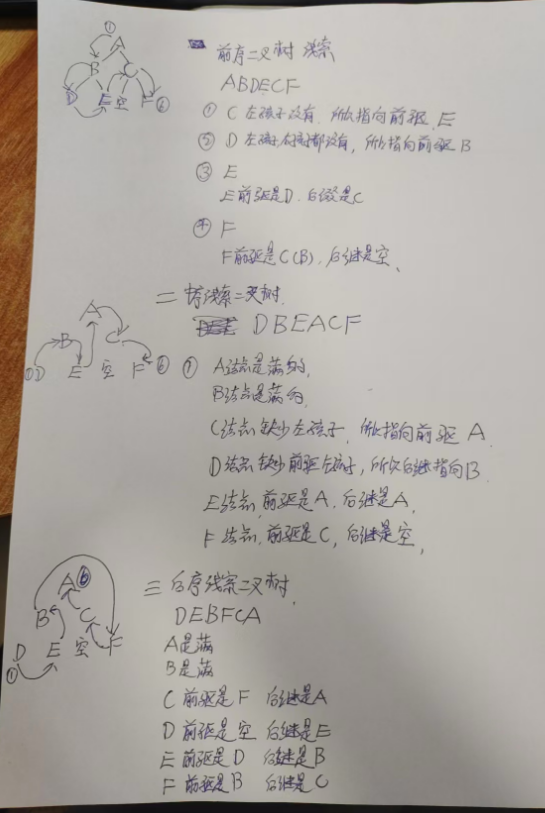 ①
A
B C
D E 空 F ⑥
前序二叉树 线索
ABDECF
① C 左孩子没有，所以指向前驱 E
② D 左孩子右孩子都没有，所以指向前驱 B
③ E
E前驱是D，后继是C
④ F
F前驱是C(B)，后继是空、
二 线索二叉树
DBEACF
A
B C
①D E 空 F ⑥
① A结点是满的，
B结点是满的，
C结点缺少左孩子，所以指向前驱 A
D结点缺少前驱左孩子，所以后继指向B
E结点，前驱是A，后继是A，
F结点，前驱是C，后继是空，
A⑥
B C
D E 空 F
①
三 后序线索二叉树
DEBFCA
A是满
B是满
C 前驱是F 后继是A
D 前驱是空 后继是E
E 前驱是D 后继是B
F 前驱是B 后继是C